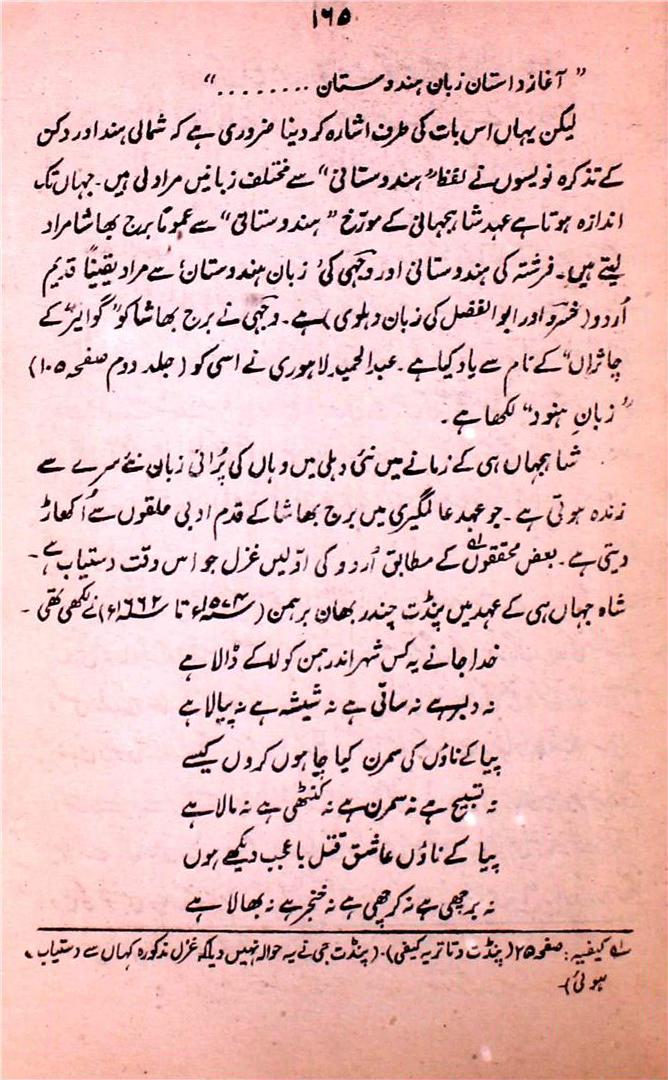 ۱۶۵
”آغاز داستان زبان ہندوستان ........“
لیکن یہاں اس بات کی طرف اشارہ کر دینا ضروری ہے کہ شمالی ہند اور دکن
کے تذکرہ نویسوں نے لفظ ”ہندوستانی“ سے مختلف زبانیں مراد لی ہیں۔ جہاں تک
اندازہ ہوتا ہے عہد شاہجہانی کے مورّخ ”ہندوستانی“ سے عموماً برج بھاشا مراد
لیتے ہیں۔ فرشتہ کی ہندوستانی اور وجہی کی ’زبان ہندوستان‘ سے مراد یقیناً قدیم
اُردو (خسرو اور ابوالفضل کی زبان دہلوی) ہے۔ وجہی نے برج بھاشا کو ”گوالیر کے
چاتراں“ کے نام سے یاد کیا ہے۔ عبدالحمید لاہوری نے اسی کو (جلد دوم صفحہ ۱۰۵)
”زبانِ ہنود“ لکھا ہے۔
شاہجہاں ہی کے زمانے میں نئی دہلی میں وہاں کی پُرانی زبان نئے سرے سے
زندہ ہوتی ہے۔ جو عہد عالمگیری میں برج بھاشا کے قدم ادبی حلقوں سے اُکھاڑ
دیتی ہے۔ بعض محققوں کے مطابق اُردو کی اوّلیں غزل جو اس وقت دستیاب ہے۔
شاہ جہاں ہی کے عہد میں پنڈت چندر بھان برہمن (۱۵۷۴ء تا ۱۶۶۲ء) نے لکھی تھی۔
خدا جانے یہ کس شہر اندر ہمن کو لاکے ڈالا ہے
نہ دلبر ہے نہ ساقی ہے نہ شیشہ ہے نہ پیالا ہے
پیا کے ناؤں کی سمرن کیا چاہوں کروں کیسے
نہ تسبیح ہے نہ سمرن ہے نہ کنٹھی ہے نہ مالا ہے
پیا کے ناؤں عاشق قتل باعجب دیکھے ہوں
نہ برچھی ہے نہ کرچھی ہے نہ خنجر ہے نہ بھالا ہے
۱؎ کیفیہ: صفحہ ۲۵ (پنڈت دتاتریہ کیفی)۔ (پنڈت جی نے یہ حوالہ نہیں دیا کہ غزل مذکورہ کہاں سے دستیاب
ہوئی)۔